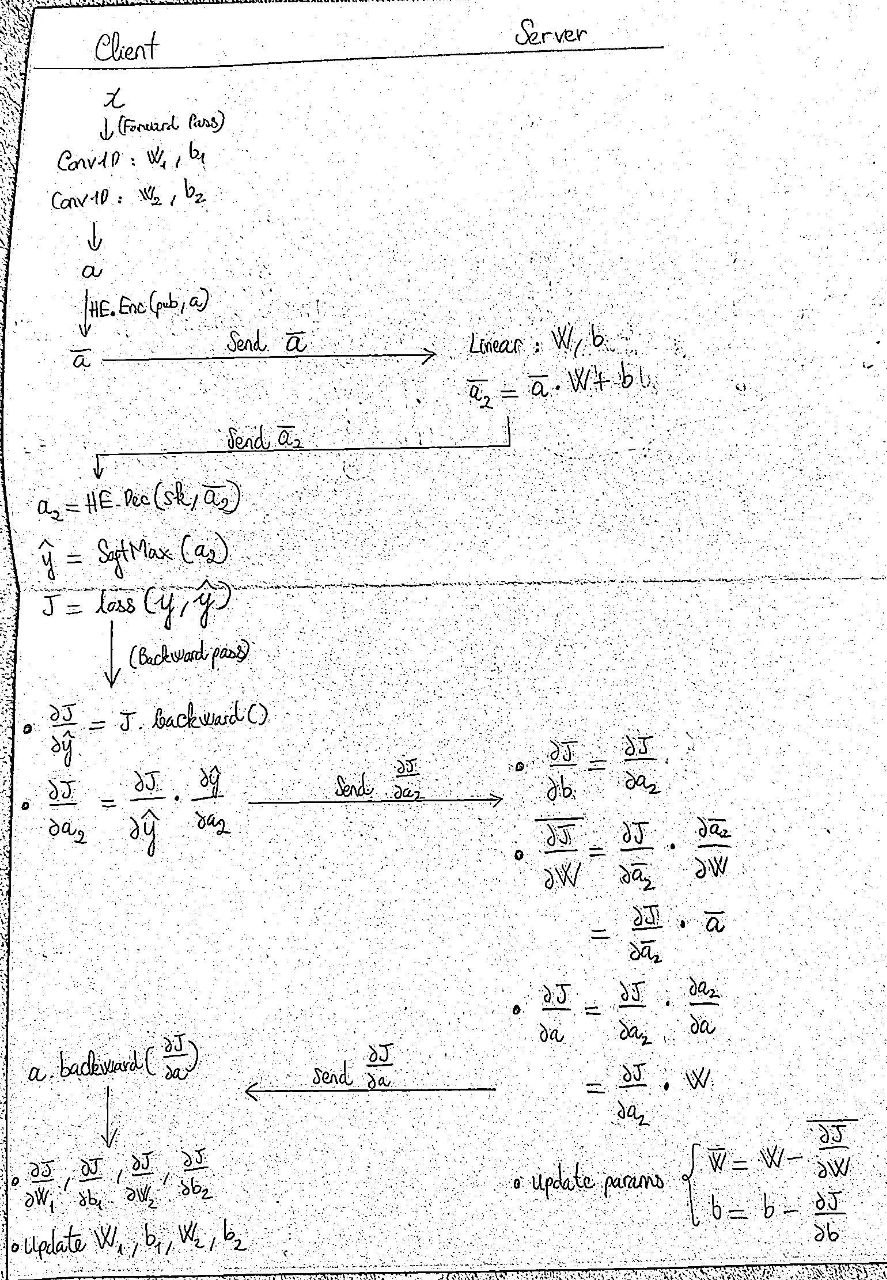 Client Server
x
↓ (Forward Pass)
Conv1D : W₁, b₁
Conv1D : W₂, b₂
↓
a
↓ HE.Enc(pub, a)
a̅ Send a̅ → Linear : W, b
a̅₂ = a̅ · W + b
Send a̅₂
a₂ = HE.Dec(sk, a̅₂)
ŷ = SoftMax(a₂)
J = loss(y, ŷ)
↓ (Backward pass)
• ∂J/∂ŷ = J. backward()
• ∂J/∂a₂ = ∂J/∂ŷ · ∂ŷ/∂a₂ Send ∂J/∂a₂ → • ∂J/∂b = ∂J/∂a₂
• \overline{∂J/∂W} = ∂J/∂a̅₂ · ∂a̅₂/∂W
= ∂J/∂a̅₂ · a̅
• ∂J/∂a = ∂J/∂a₂ · ∂a₂/∂a
a. backward(∂J/∂a) ← Send ∂J/∂a = ∂J/∂a₂ · W
↓
• ∂J/∂W₁, ∂J/∂b₁, ∂J/∂W₂, ∂J/∂b₂
• Update params { W̅ = W − \overline{∂J/∂W}
b = b − ∂J/∂b
• Update W₁, b₁, W₂, b₂